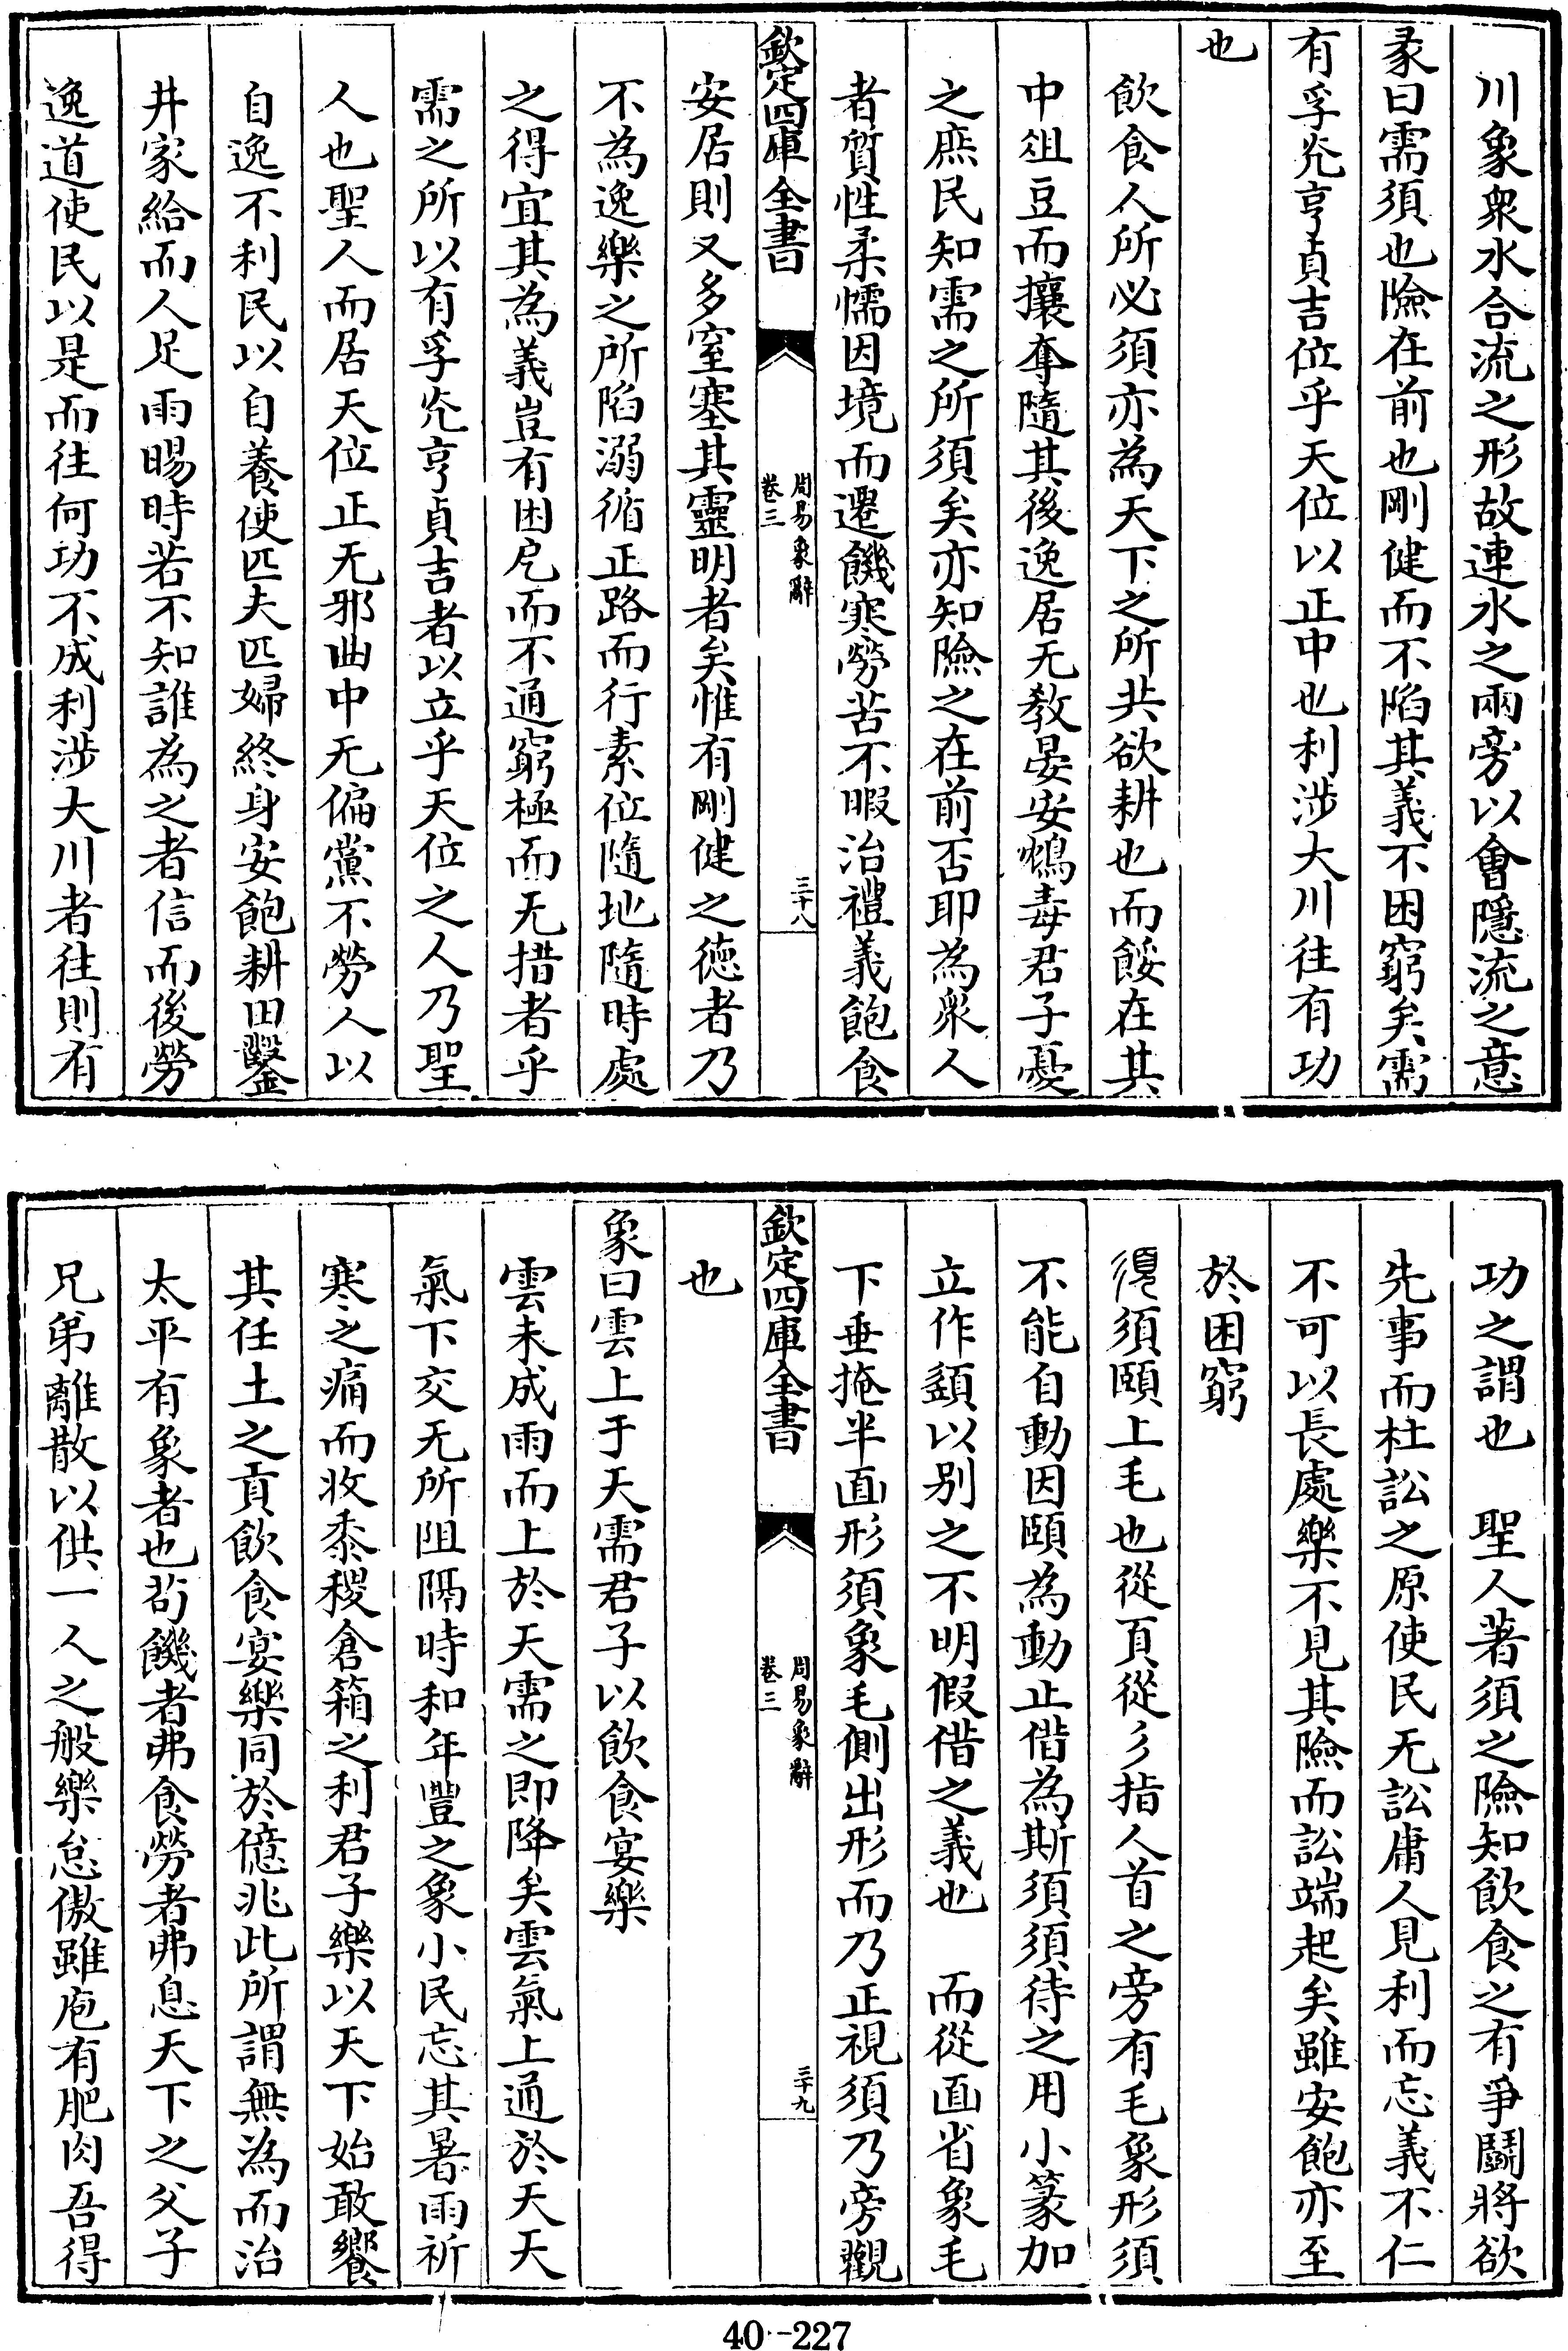 川象衆水合流之形故連水之兩旁以會隱流之意
彖曰需須也險在前也剛健而不陷其義不困窮矣需
有孚光亨貞吉位乎天位以正中也利涉大川往有功
也
飲食人所必須亦為天下之所共欲耕也而餒在其
中俎豆而攘奪隨其後逸居无教晏安鴆毒君子憂
之庶民知需之所須矣亦知險之在前否耶為衆人
者質性柔懦因境而遷饑寒勞苦不暇治禮義飽食
欽定四庫全書
周易象辭
卷三
三十八
安居則又多窒塞其靈明者矣惟有剛健之德者乃
不為逸樂之所陷溺循正路而行素位隨地隨時處
之得宜其為義豈有困戹而不通窮極而无措者乎
需之所以有孚光亨貞吉者以立乎天位之人乃聖
人也聖人而居天位正无邪曲中无偏黨不勞人以
自逸不利民以自養使匹夫匹婦終身安飽耕田鑿
井家給而人足雨暘時若不知誰為之者信而後勞
逸道使民以是而往何功不成利涉大川者往則有
功之謂也　聖人著須之險知飲食之有爭鬭將欲
先事而杜訟之原使民无訟庸人見利而忘義不仁
不可以長處樂不見其險而訟端起矣雖安飽亦至
於困窮
須頤上毛也從頁從彡指人首之旁有毛象形須
不能自動因頤為動止借為斯須須待之用小篆加
立作䇓以別之不明假借之義也　而從面省象毛
下垂掩半面形須象毛側出形而乃正視須乃旁觀
欽定四庫全書
周易象辭
卷三
三十九
也
象曰雲上于天需君子以飲食宴樂
雲未成雨而上於天需之即降矣雲氣上通於天天
氣下交无所阻隔時和年豐之象小民忘其暑雨祈
寒之痛而收黍稷倉箱之利君子樂以天下始敢饗
其任土之貢飲食宴樂同於億兆此所謂無為而治
太平有象者也茍饑者弗食勞者弗息天下之父子
兄弟離散以供一人之般樂怠傲雖庖有肥肉吾得
40-227